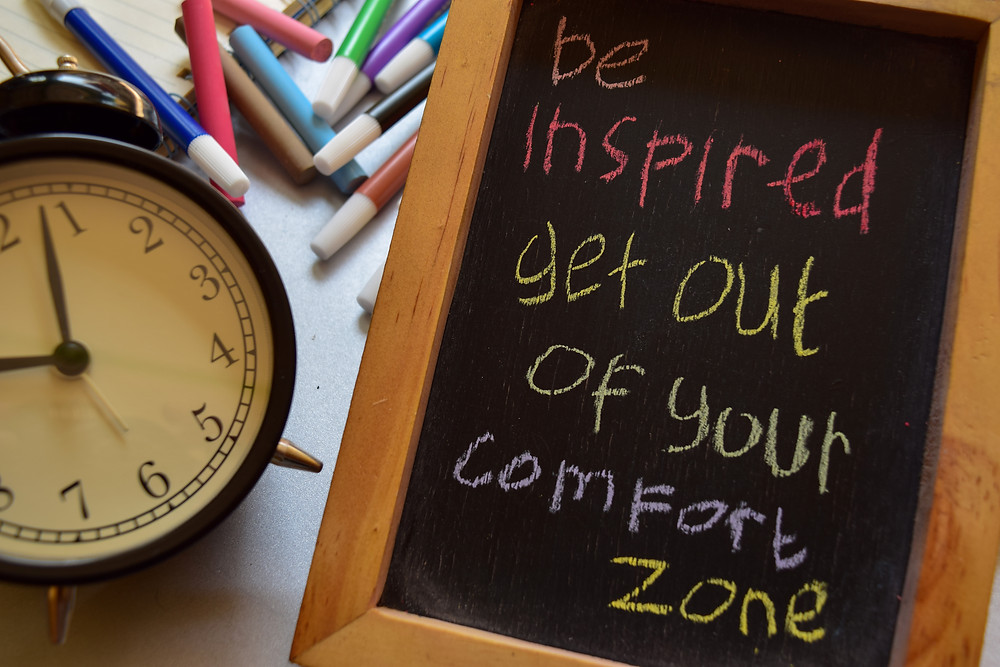 be
inspired
get out
of your
comfort
zone
2
1
2
3
4
5
6
7
8